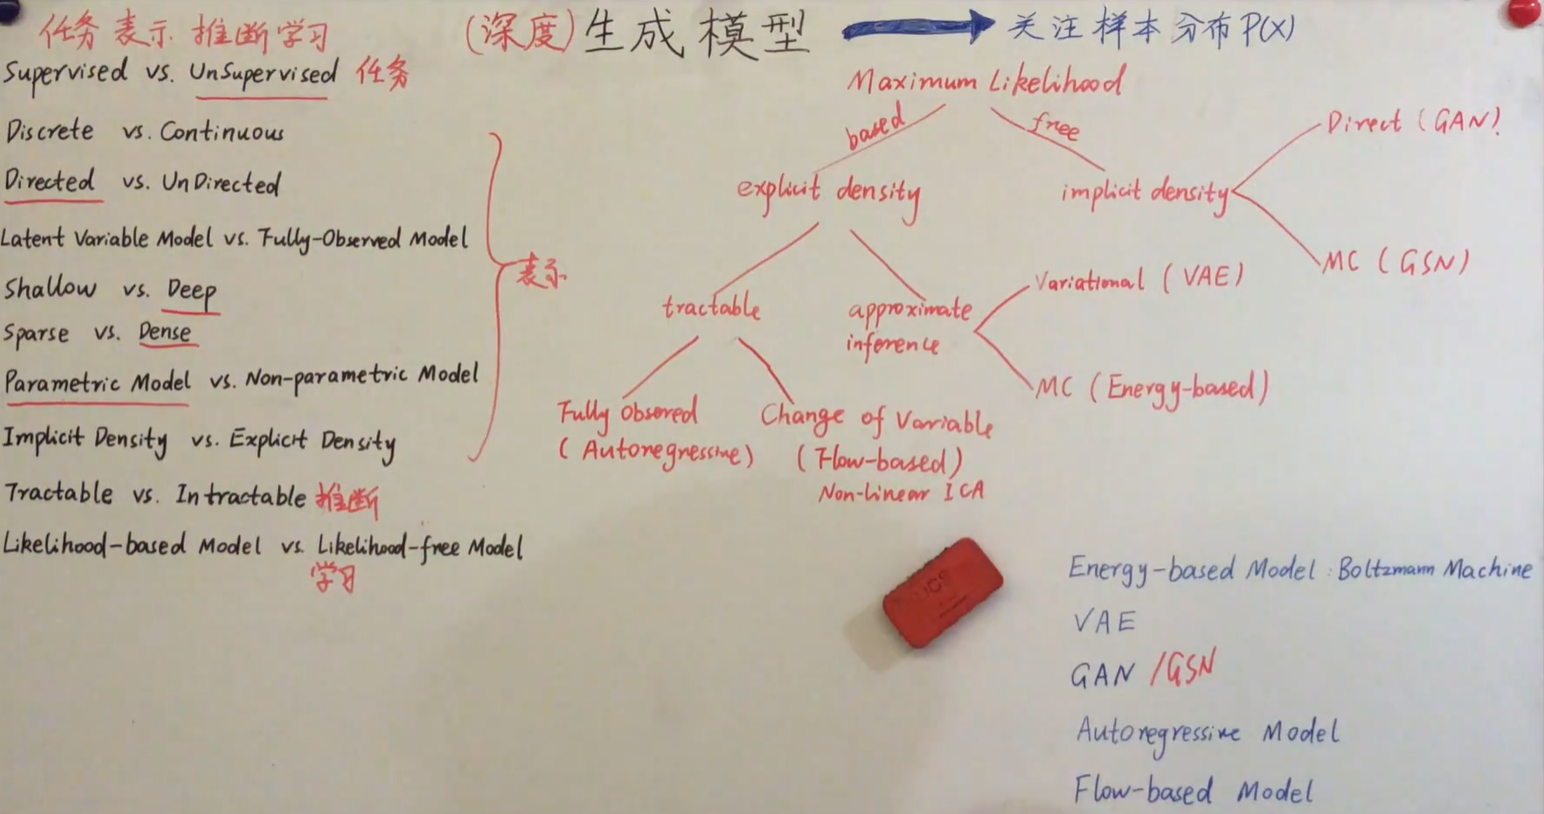 任务 表示 推断 学习
(深度)生成模型 → 关注样本分布 P(X)
Supervised vs. UnSupervised 任务
Discrete vs. Continuous
Directed vs. UnDirected
Latent Variable Model vs. Fully-Observed Model
Shallow vs. Deep
Sparse vs. Dense
Parametric Model vs. Non-parametric Model
Implicit Density vs. Explicit Density
表示
Tractable vs. Intractable 推断
Likelihood-based Model vs. Likelihood-free Model
学习
Maximum Likelihood
based
free
explicit density
implicit density
Direct (GAN)
MC (GSN)
tractable
approximate
inference
Variational (VAE)
MC (Energy-based)
Fully Obsered
(Autoregressive)
Change of Variable
(Flow-based)
Non-linear ICA
Energy-based Model: Boltzmann Machine
VAE
GAN /GSN
Autoregressive Model
Flow-based Model